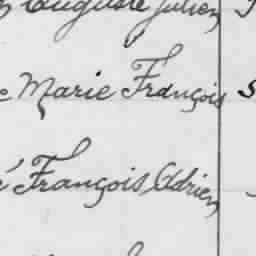 Auguste Julien
Marie François
François Adrien